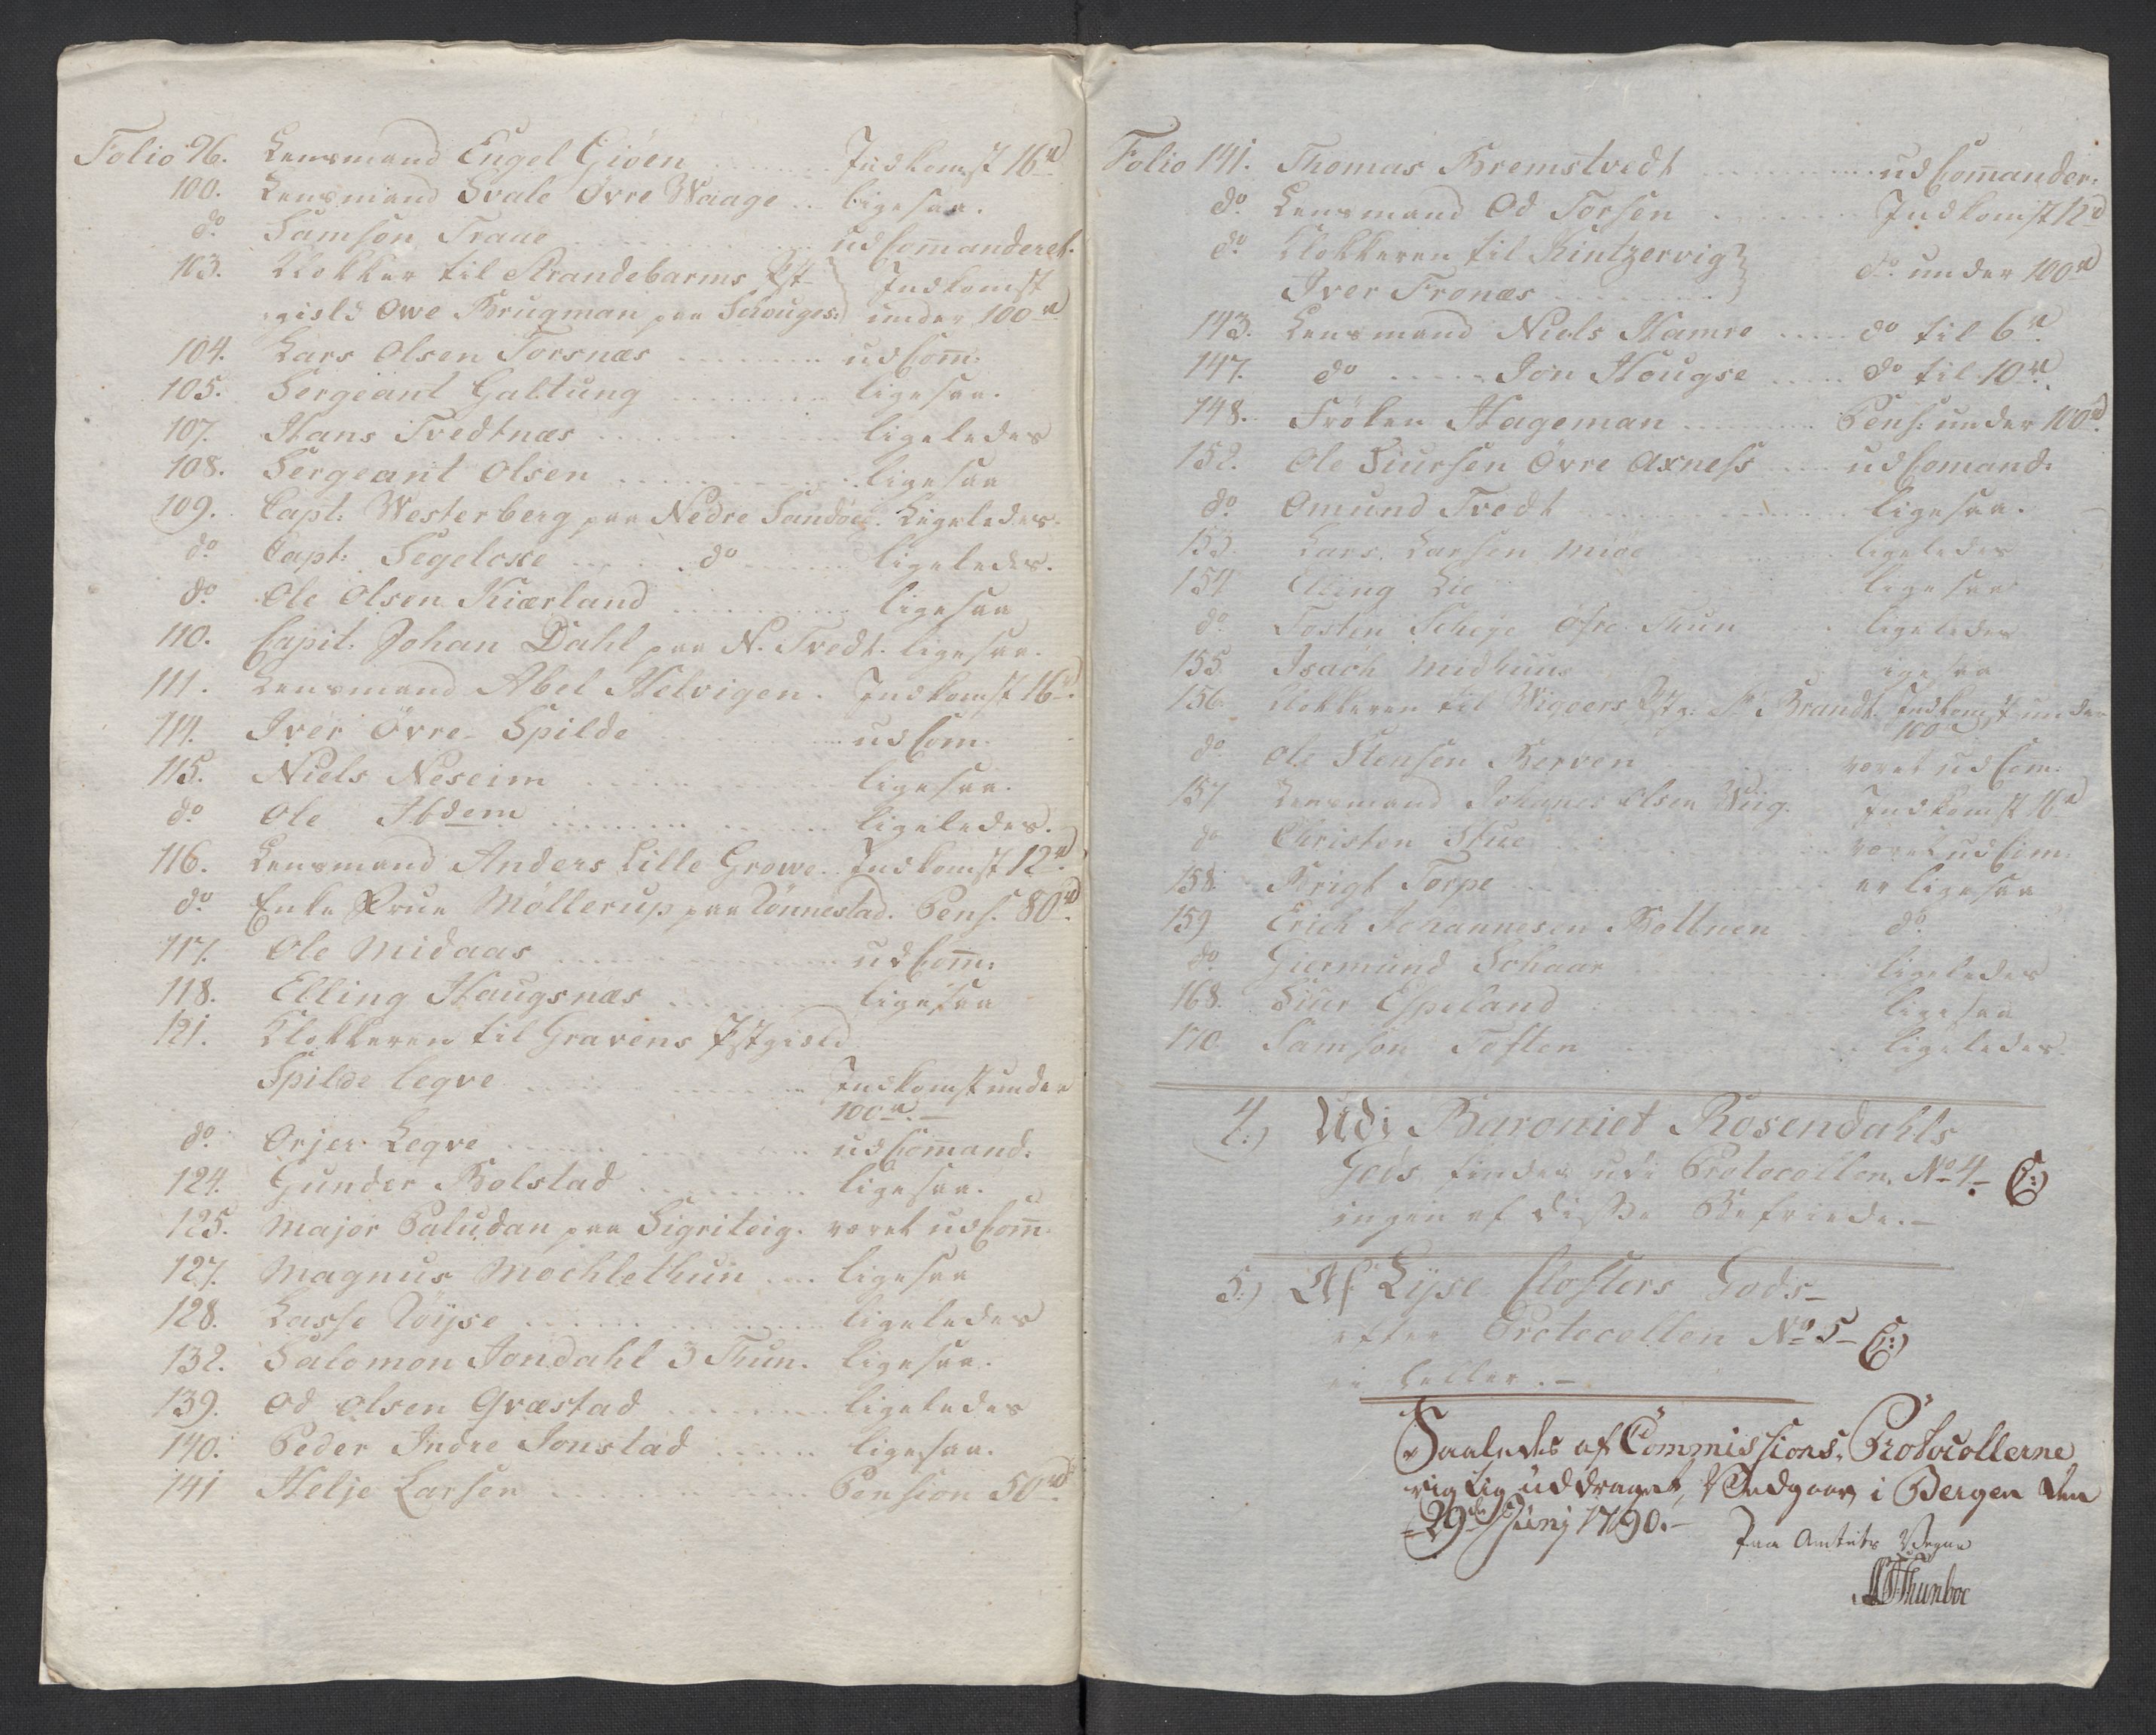 Folio 96. Lensmand Engel Giöen ..... Indkomst 16 rd
100. Lensmand Svale Øvre Waage .. ligesaa.
do. Samson Traae ..... udCommanderet.
103. Klokker til Strandebarms Pst- Indkomst
gield Owe Brugman paa Schouges: under 100 rd
104. Lars Olsen Torsnæs ..... udCom:
105. Sergeant Galtung ..... ligesaa.
107. Hans Tvedtnæs ..... ligeledes
108. Sergeant Olsen ..... ligesaa
109. Capt: Westerberg paa Nedre Sandve. Ligeledes.
do Capt: Segeloxe ... do ..... ligeledes.
do. Ole Olsen Kiærland ..... ligesaa
110. Capit. Johan Dahl paa N. Tvedt. ligesaa.
111. Lensmand Abel Helvigen. Indkomst 16 rd.
114. Iver Øvre Spilde ..... udCom.
115. Niels Neseim ..... ligesaa.
do. Ole Ibdem ..... ligeledes.
116. Lensmand Anders Lille Growe. Indkomst 12 rd.
do. Enke Frue Möllerup paa Tönnestad. Pens. 80 rd.
117. Ole Midaas ..... udCom:
118. Elling Haugsnæs ..... ligesaa
121. Klokkeren til Gravens Pstgield
Spilde Leqve ..... Indkomst under
100 rd. —
do. Orjer Leqve ..... udComand:
124. Gunder Bolstad ..... ligesaa.
125. Major Paludan paa Sigriteig. været udCom:
127. Magnus Mochlethun ... ligesaa
128. Lasse Röyse ..... ligeledes
132. Salomon Jondahl 3 Thun. ligesaa.
139. Od Olsen Qvæstad ..... ligeledes
140. Peder Indre Jonstad ..... ligesaa.
141 Helje Larsen ..... Pension 50 rd.
Folio 141. Thomas Bremstvedt ..... udCommander.
do. Lensmand Od Torsen ..... Indkomst 12 rd
do. Klokkeren til Kintzervig
Iver Fronæs ..... do. under 100 rd
143. Lensmand Niels Hamre ..... do til 6 rd.
147. do ..... Jon Hougse ..... do til 10 rd.
148. Fröken Hageman ..... Pens: under 100 rd.
152. Ole Siursen Övre Axness ... udComand:
do. Omund Tvedt ..... ligesaa.
153. Lars Larsen Mioe ..... ligeledes
154 Elling Lie ligesaa
do Tosten Scheje Öfre Thun ligeledes
155. Isach Midhuus ligesaa
156. Klokkeren til Wigöers Pstg: Sr Brandt. Indkomst under
100 rd
do Ole Stensen Berven været udCom:
157 Lensmand Johanes Olsen Wiig. Indkomst 16 rd
do Christen Stue været udCom:
158. Brigt Torpe ..... er ligesaa
159 Erich Johannesen Kolltnen ... do.
do. Giermund Sohaar ..... ligeledes
168. Siur Espeland ..... ligesaa
170. Samson Toften ..... ligeledes.
4:) Udi Baroniet Rosendahls
Gods findes udi Protocollen No 4 — C:)
ingen af disse Befriede. —
5:) Af Lyse Closters Gods —
efter Protocollen No 5 — C:)
ei heller. —
Saaledes af Commissions-Protocollerne
rigtig uddraget, Vedgaaer i Bergen den
29de Junj 1790. —
Paa Amtets Vegne